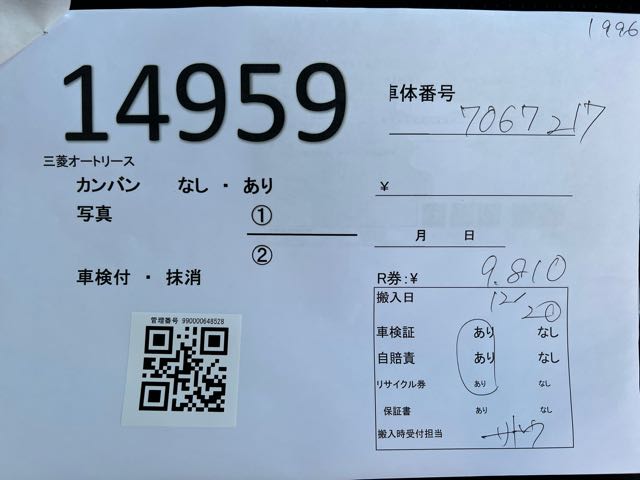 1996
14959
車体番号
7067217
三菱オートリース
カンバン なし ・ あり
¥
写真 ①
②
月 日
車検付 ・ 抹消
R券:¥ 9.810
搬入日 12/20
車検証 あり なし
自賠責 あり なし
リサイクル券 あり なし
保証書 あり なし
搬入時受付担当 サトウ
管理番号 990000648528